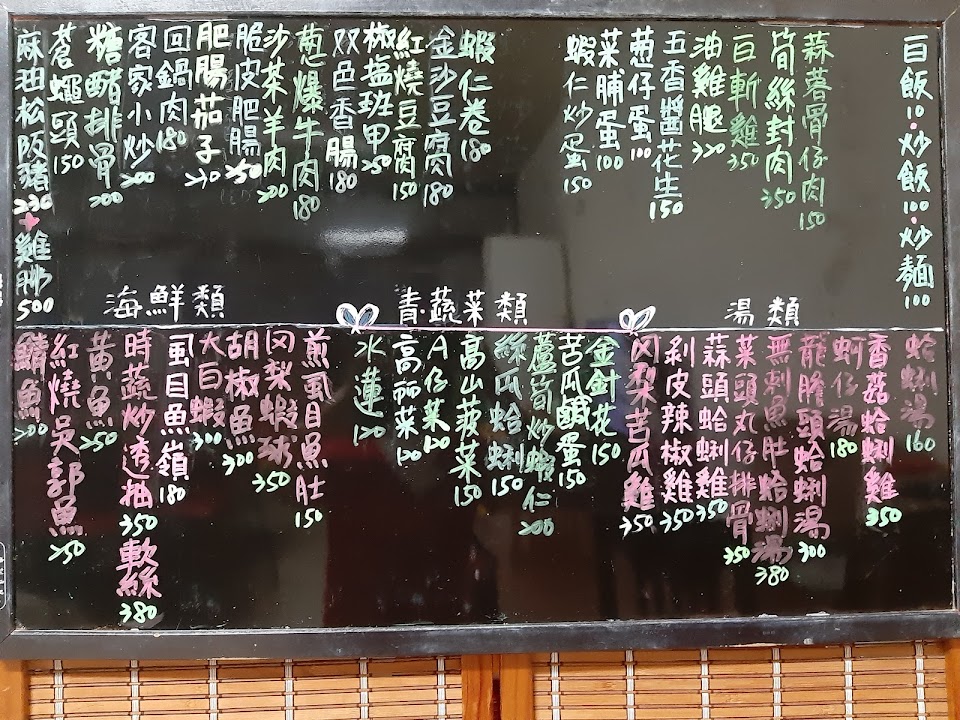 白飯10.炒飯100.炒麵100
蒜蓉骨仔肉150
筍絲封肉350
白斬雞350
油雞腿320
五香醬花生150
葱仔蛋100
菜脯蛋100
蝦仁炒蛋150
蝦仁卷180
金沙豆腐180
紅燒豆腐150
椒塩班甲250
双色香腸180
葱爆牛肉180
沙茶羊肉200
脆皮肥腸250
肥腸茄子230
回鍋肉180
客家小炒200
糖醋排骨200
蒼蠅頭150
麻油松阪豬230
雞腳500
湯類
蛤蜊湯160
香菇蛤蜊雞350
蚵仔湯180
龍膽頭蛤蜊湯300
無刺魚肚蛤蜊湯380
菜頭丸仔排骨350
蒜頭蛤蜊雞350
剝皮辣椒雞350
冈梨苦瓜雞350
青蔬菜類
金針花150
苦瓜鹹蛋150
蘆筍炒蝦仁200
絲瓜蛤蜊150
高山菠菜150
A仔菜120
高丽菜120
水蓮120
海鮮類
煎虱目魚肚150
冈梨蝦球350
胡椒魚300
大白蝦300
虱目魚嶺180
時蔬炒透抽350
軟絲380
黄魚250
紅燒吳郭魚250
鯖魚200